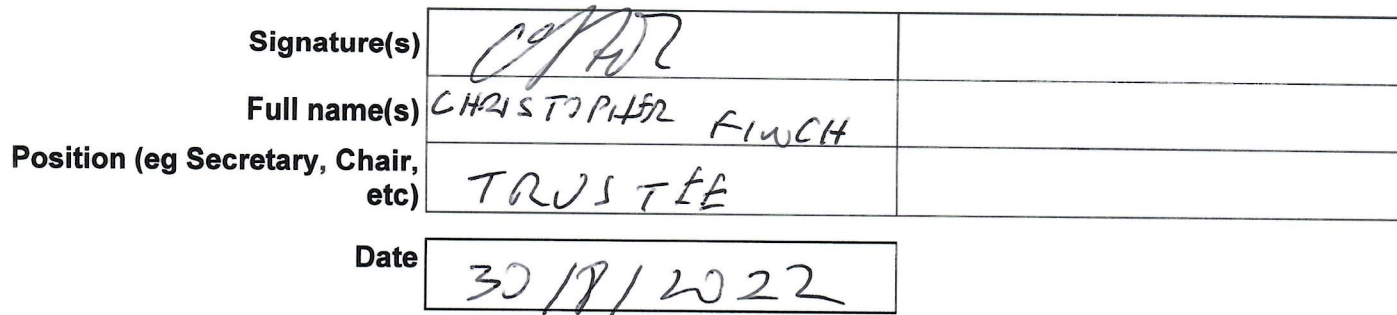 Signature(s)
Full name(s) CHRISTOPHER FINCH
Position (eg Secretary, Chair,
etc) TRUSTEE
Date 30/8/2022